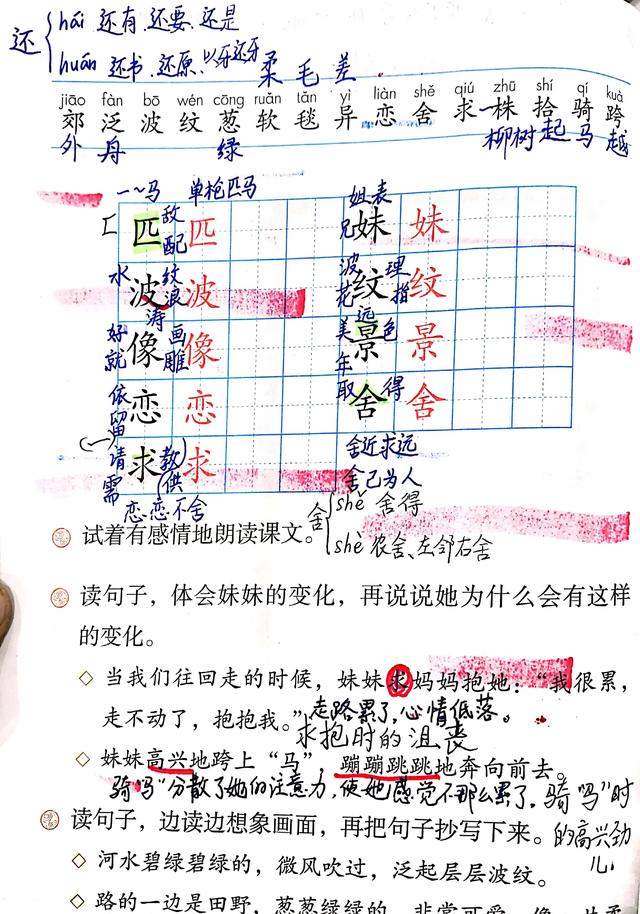 还
hái 还有.还要.还是
huán 还书.还原.以牙还牙
柔 毛 差
jiāo fàn bō wén cōng ruǎn tǎn yì liàn shě qiú zhū shí qí kuà
郊 泛 波 纹 葱 软 毯 异 恋 舍 求 一株 拾 骑 跨
外 舟 绿 柳树 起 马 越
一~马 单枪匹马 姐表
匚 匹 敌 配 匹 兄 妹 妹
水 波 纹 浪 涛 波 波 花 纹 理 指 纹
好 就 像 画 雕 像 美 年 景 远 色 景
依 留 恋 恋 取 舍 得 舍
请 需 求 教 供 求 舍近求远
舍己为人
恋恋不舍
舍
shě 舍得
shè 农舍、左邻右舍
试着有感情地朗读课文。
读句子，体会妹妹的变化，再说说她为什么会有这样
的变化。
◇ 当我们往回走的时候，妹妹求妈妈抱她：“我很累，
走不动了，抱抱我。”
走路累了，心情低落。
求抱时的沮丧
◇ 妹妹高兴地跨上“马”，蹦蹦跳跳地奔向前去。
骑吗”分散了她的注意力，使她感觉不那么累了。骑吗”时
的高兴劲
儿
读句子，边读边想象画面，再把句子抄写下来。
◇ 河水碧绿碧绿的，微风吹过，泛起层层波纹。
◇ 路的一边是田野，葱葱绿绿的，非常可爱，像一片柔